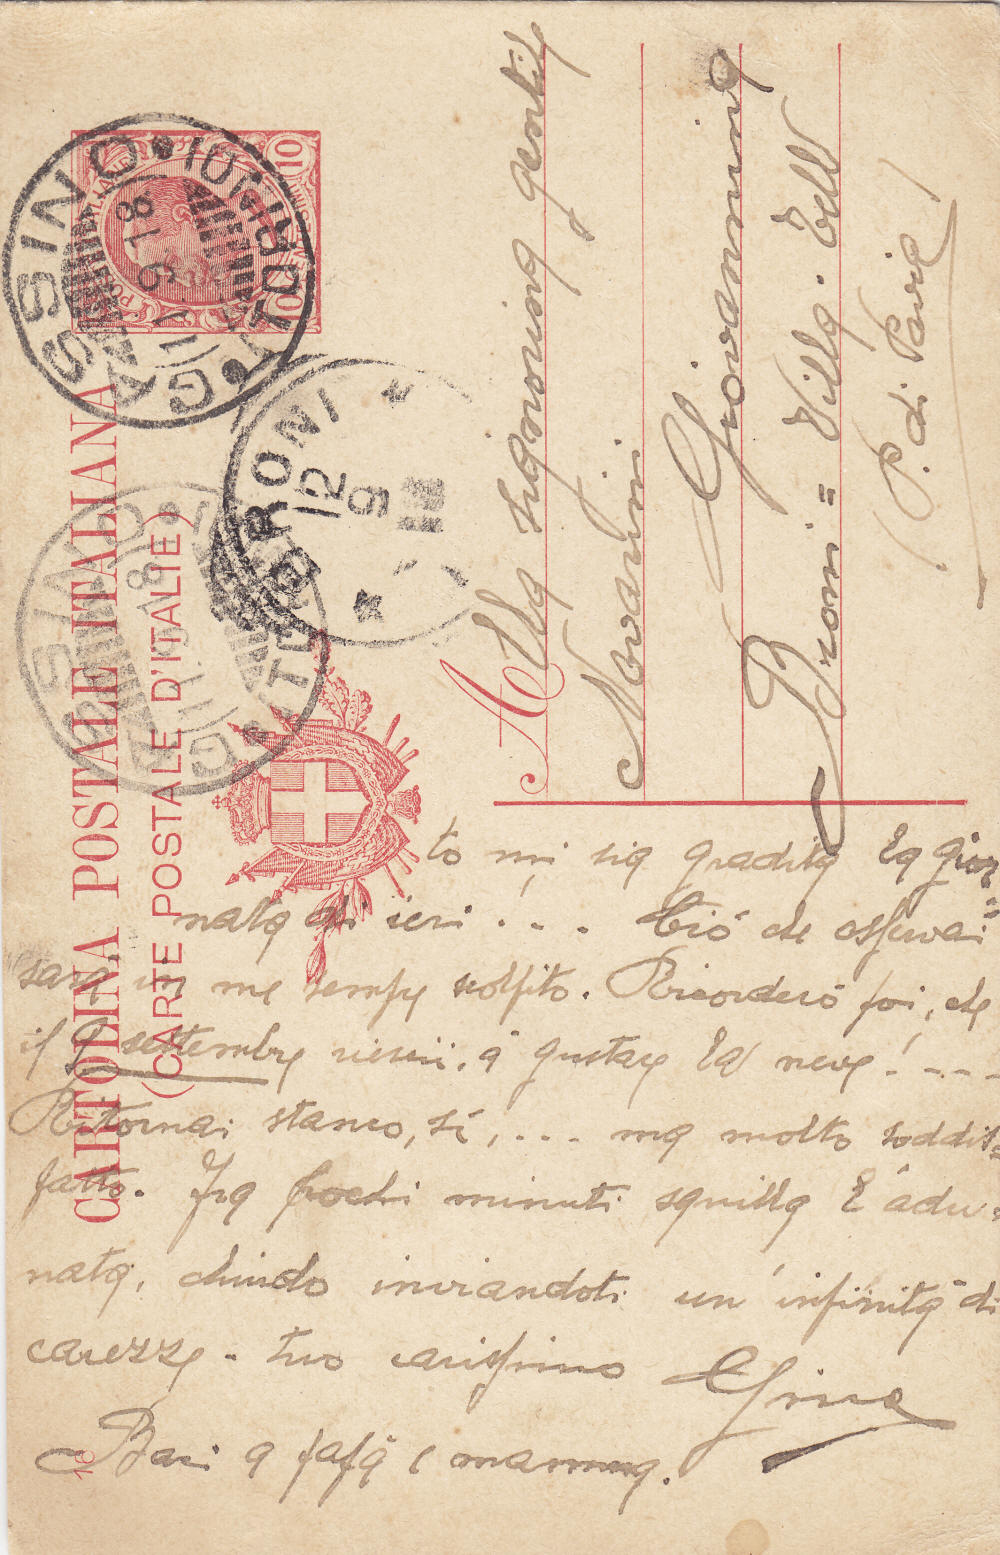 CARTOLINA POSTALE ITALIANA
(CARTE POSTALE D'ITALIE)
10
10
CASSINO
TORINO
11 9 18
BRONI
12 9
Alla signorina gentile
Novarini
Giovannina
Broni = Villa. Tell
(P. di Pavia)
to mi sia gradita la gior=
nata di ieri . . . Ciò che osservai
sarà in me sempre scolpito. Ricorderò poi, che
il 9 settembre a gustare la neve! . . . .
Ritornai stanco, sì, . . . ma molto soddis=
fatto. Fra pochi minuti squilla l'adu=
nata, chiudo inviandoti un'infinità di
carezze - tuo carissimo
Baci a papà e mamma.
18